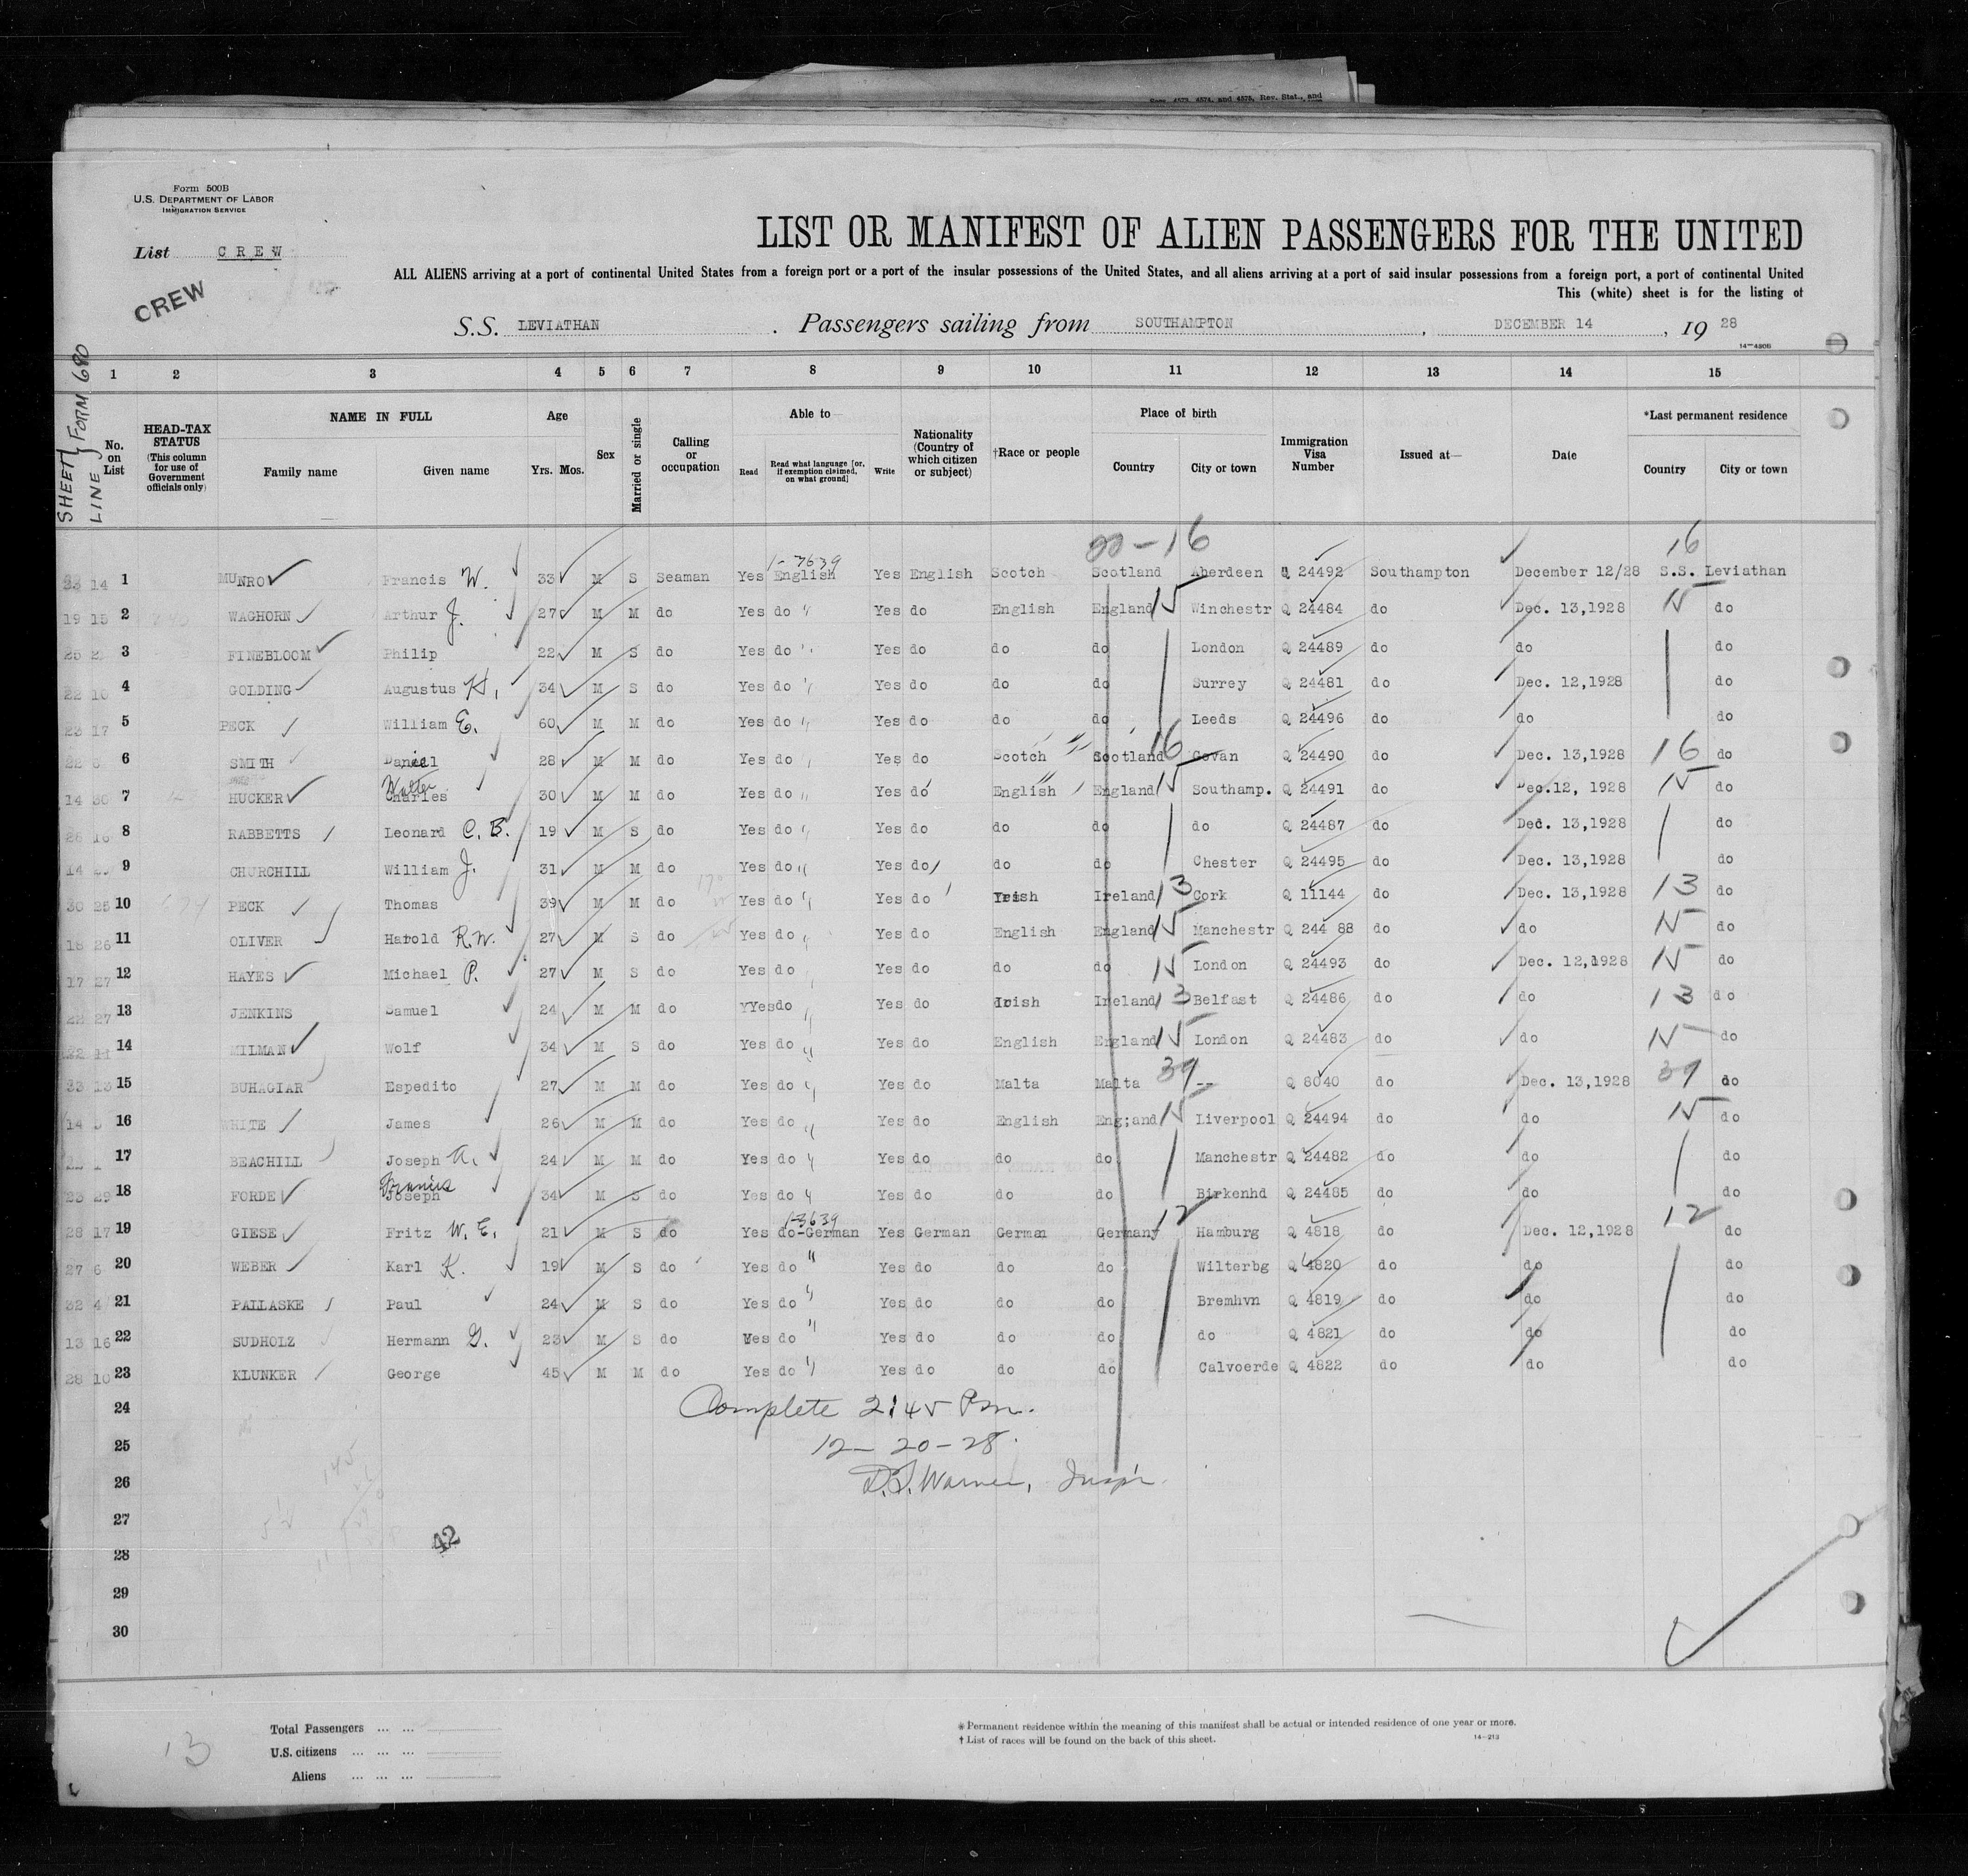 Secs. 4573, 4574, and 4575, Rev. Stat., and
Form 500B
U.S. DEPARTMENT OF LABOR
IMMIGRATION SERVICE
LIST OR MANIFEST OF ALIEN PASSENGERS FOR THE UNITED
List CREW
CREW
ALL ALIENS arriving at a port of continental United States from a foreign port or a port of the insular possessions of the United States, and all aliens arriving at a port of said insular possessions from a foreign port, a port of continental United
This (white) sheet is for the listing of
S.S. LEVIATHAN . Passengers sailing from SOUTHAMPTON , DECEMBER 14 , 19 28
14—480B
SHEET LINE } FORM 680
1 2 3 4 5 6 7 8 9 10 11 12 13 14 15
No. on List
HEAD-TAX STATUS (This column for use of Government officials only)
NAME IN FULL
Family name Given name
Age
Yrs. Mos.
Sex
Married or single
Calling or occupation
Able to—
Read Read what language [or, if exemption claimed, on what ground] Write
Nationality (Country of which citizen or subject)
†Race or people
Place of birth
Country City or town
Immigration Visa Number
Issued at—
Date
*Last permanent residence
Country City or town
1-3639 16 16
14 1 MUNRO Francis W. 33 M S Seaman Yes English Yes English Scotch Scotland Aberdeen Q 24492 Southampton December 12/28 S.S. Leviathan
19 15 2 WAGHORN Arthur J. 27 M M do Yes do " Yes do English England 15 Winchestr Q 24484 do Dec. 13,1928 15 do
25 3 FINEBLOOM Philip 22 M S do Yes do " Yes do do do London Q 24489 do do do
22 10 4 GOLDING Augustus H. 34 M S do Yes do " Yes do do do Surrey Q 24481 do Dec. 12,1928 do
23 17 5 PECK William E. 60 M M do Yes do " Yes do do do Leeds Q 24496 do do do
22 6 6 SMITH Daniel 28 M M do Yes do " Yes do Scotch Scotland 16 Govan Q 24490 do Dec. 13,1928 16 do
14 30 7 HUCKER Walter Charles 30 M M do Yes do " Yes do English England 15 Southamp. Q 24491 do Dec.12, 1928 15 do
16 8 RABBETTS Leonard C. B. 19 M S do Yes do " Yes do do do do Q 24487 do Dec. 13,1928 do
14 9 CHURCHILL William J. 31 M M do Yes do " Yes do do do Chester Q 24495 do Dec. 13,1928 do
30 25 10 PECK Thomas 39 M M do Yes do " Yes do Irish Ireland 13 Cork Q 11144 do Dec. 13,1928 13 do
18 26 11 OLIVER Harold R.W. 27 M S do Yes do " Yes do English England 15 Manchestr Q 244 88 do do 15 do
17 27 12 HAYES Michael P. 27 M S do Yes do Yes do do do 15 London Q 24493 do Dec. 12,1928 15 do
22 27 13 JENKINS Samuel 24 M M do YYes do " Yes do Irish Ireland 13 Belfast Q 24486 do do 13 do
22 11 14 MILMAN Wolf 34 M S do Yes do " Yes do English England 15 London Q 24483 do do 15 do
33 13 15 BUHAGIAR Espedito 27 M M do Yes do " Yes do Malta Malta 39 -- Q 8040 do Dec. 13,1928 39 do
14 5 16 WHITE James 26 M M do Yes do " Yes do English Eng;and 15 Liverpool Q 24494 do do 15 do
17 BEACHILL Joseph A. 24 M M do Yes do " Yes do do do Manchestr Q 24482 do do do
23 29 18 FORDE Francis Joseph 34 M S do Yes do " Yes do do do Birkenhd Q 24485 do do do
1-3639
28 17 19 GIESE Fritz W. E. 21 M S do Yes do-German Yes German German Germany 12 Hamburg Q 4818 do Dec. 12,1928 12 do
27 6 20 WEBER Karl K. 19 M S do Yes do " Yes do do do Wilterbg Q 4820 do do do
32 4 21 PALLASKE Paul 24 M S do Yes do " Yes do do do Bremhvn Q 4819 do do do
13 16 22 SUDHOLZ Hermann G. 23 M S do Yes do " Yes do do do do Q 4821 do do do
28 10 23 KLUNKER George 45 M M do Yes do " Yes do do do Calvoerde Q 4822 do do do
24 Complete 2:45 Pm.
25 12-20-28.
26 D.S. Warner, Insp'r
27
28 42
29
30
13
Total Passengers ... ...
U.S. citizens ... ... ...
Aliens ... ... ...
* Permanent residence within the meaning of this manifest shall be actual or intended residence of one year or more.
† List of races will be found on the back of this sheet.
14—213